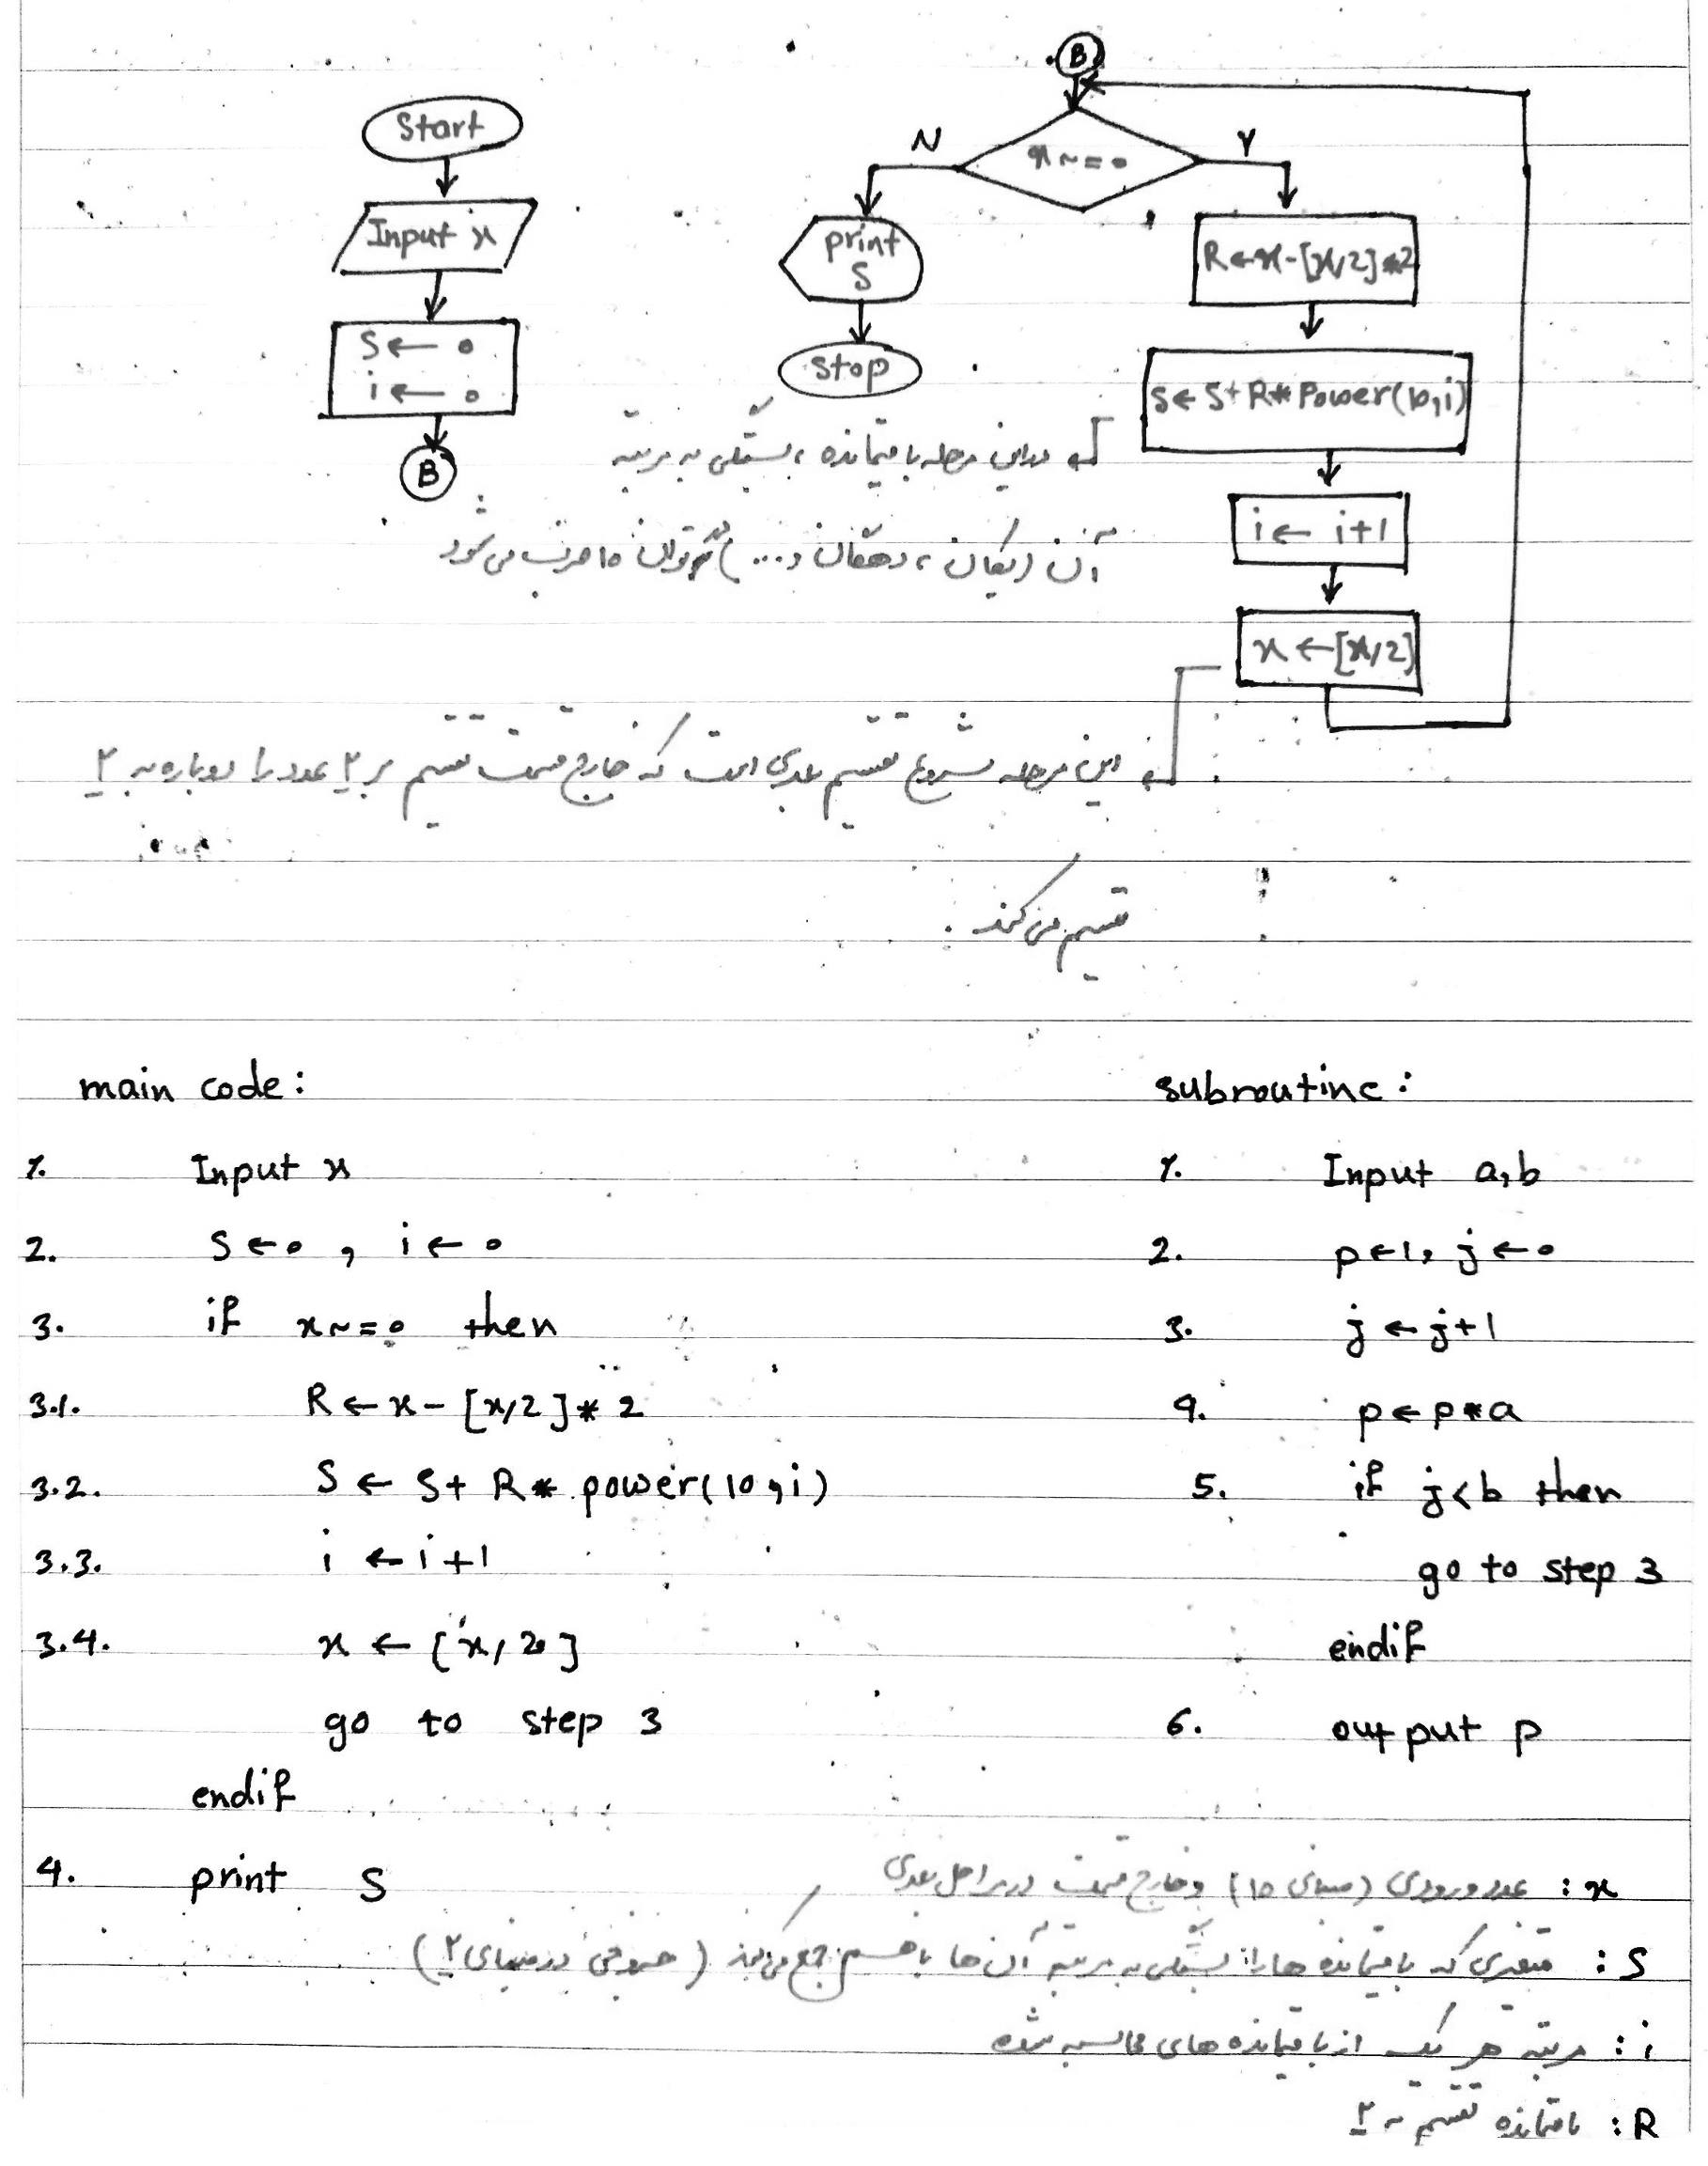 Start
Input x
S ← 0
i ← 0
B
B
x ~= 0
N
Y
print
S
stop
R ← x - [x/2] * 2
S ← S + R * Power(10,i)
i ← i+1
x ← [x/2]
در این مرحله باقیمانده، بستگی به مرتبه
آن (یکان، دهگان و ...) در توان 10 ضرب می شود
این مرحله شروع تقسیم بعدی است که خارج قسمت تقسیم بر ۲ عدد را دوباره به ۲
تقسیم می کند.
main code:
1. Input x
2. S ← 0 , i ← 0
3. if x ~= 0 then
3.1. R ← x - [x/2] * 2
3.2. S ← S + R * power(10,i)
3.3. i ← i+1
3.4. x ← [x/2]
go to step 3
endif
4. print S
subroutine:
1. Input a,b
2. p ← 1, j ← 0
3. j ← j+1
4. p ← p * a
5. if j < b then
go to step 3
endif
6. output p
x : عدد ورودی (مبنای 10) و خارج قسمت در مراحل بعدی
S : متغیری که باقیمانده ها را بستگی به مرتبه آن ها با هم جمع می کند (خروجی در مبنای ۲)
i : مرتبه هر یک از باقیمانده های محاسبه شده
R : باقیمانده تقسیم به ۲